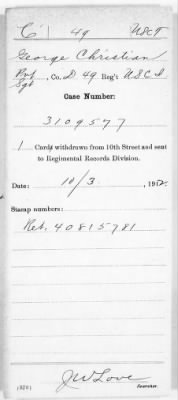 C 49 USCT
George Christian
Pvt
Sgt, Co. D 49 Reg't U.S.C.I
Case Number:
3109577
1 Cards withdrawn from 10th Street and sent
to Regimental Records Division.
Date: 10/3, 1912.
Stamp numbers:
Ret. 40815781
J W Love